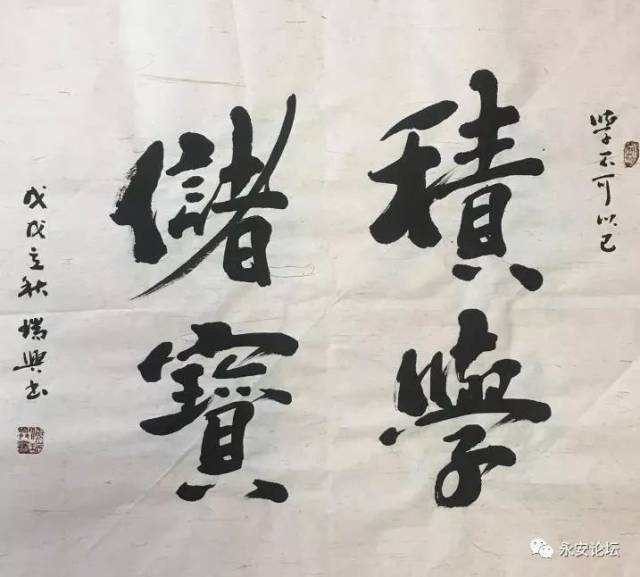 學不可以已
積學
儲寶
戊戌立秋 瑞興书
永安论坛